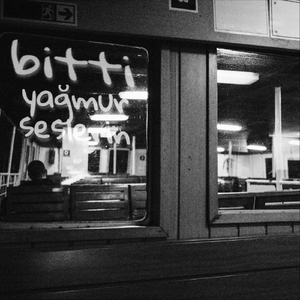 bitti
yağmur
seslerin